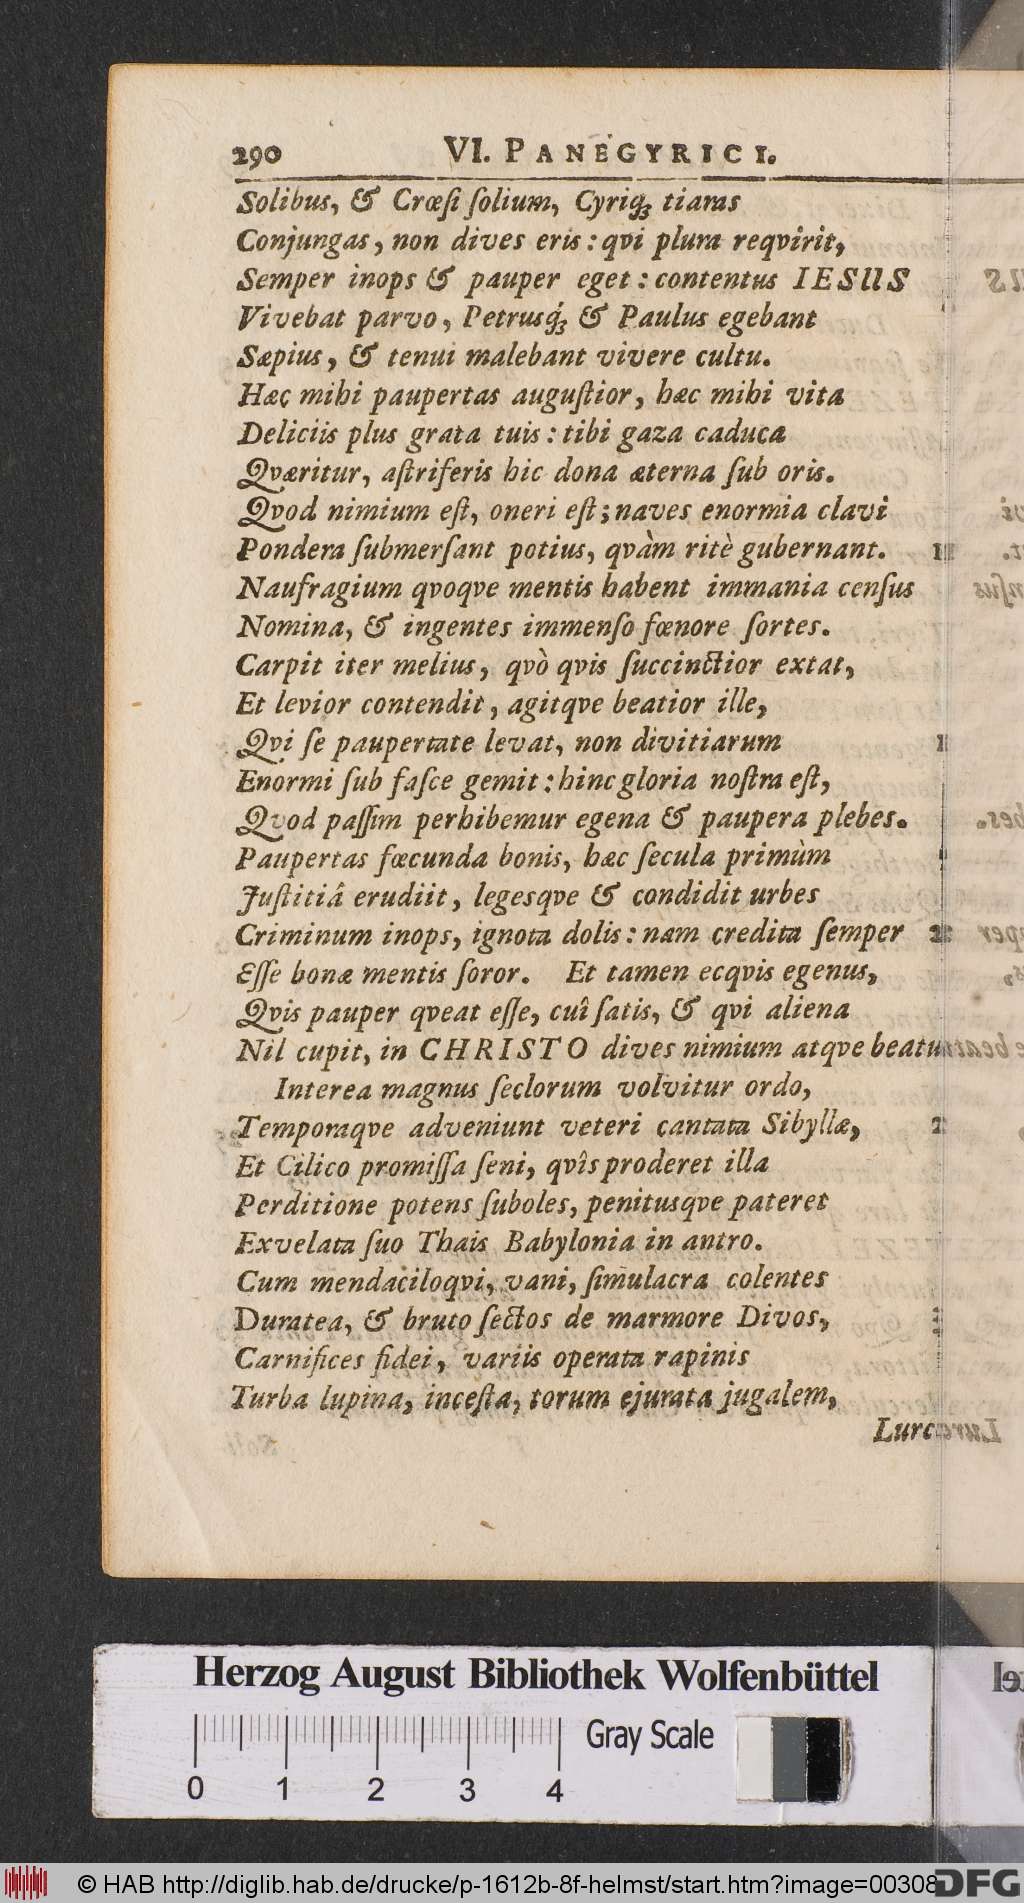 290 VI. PANEGYRICI.
Solibus, & Crœſi ſolium, Cyriq́ꝫ tiaras
Conjungas, non dives eris: qvi plura reqvirit,
Semper inops & pauper eget: contentus IESUS
Vivebat parvo, Petrusq́ꝫ & Paulus egebant
Sæpius, & tenui malebant vivere cultu.
Hæc mihi paupertas auguſtior, hæc mihi vita
Deliciis plus grata tuis: tibi gaza caduca
Qværitur, aſtriferis hic dona æterna ſub oris.
Qvod nimium eſt, oneri eſt; naves enormia clavi
Pondera ſubmerſant potius, qvàm ritè gubernant.
Naufragium qvoqve mentis habent immania cenſus
Nomina, & ingentes immenſo fœnore ſortes.
Carpit iter melius, qvò qvis ſuccinctior extat,
Et levior contendit, agitqve beatior ille,
Qvi ſe paupertate levat, non divitiarum
Enormi ſub faſce gemit: hinc gloria noſtra eſt,
Qvod paſſim perhibemur egena & paupera plebes.
Paupertas fœcunda bonis, hæc ſecula primùm
Juſtitiâ erudiit, legesqve & condidit urbes
Criminum inops, ignota dolis: nam credita ſemper
Eſſe bonæ mentis ſoror. Et tamen ecqvis egenus,
Qvis pauper qveat eſſe, cuî ſatis, & qvi aliena
Nil cupit, in CHRISTO dives nimium atqve beatu
Interea magnus ſeclorum volvitur ordo,
Temporaqve adveniunt veteri cantata Sibyllæ,
Et Cilico promiſſa ſeni, qvîs proderet illa
Perditione potens ſuboles, penitusqve pateret
Exvelata ſuo Thais Babylonia in antro.
Cum mendaciloqvi, vani, ſimulacra colentes
Duratea, & bruto ſectos de marmore Divos,
Carnifices fidei, variis operata rapinis
Turba lupina, inceſta, torum ejurata jugalem,
Lurc
Herzog August Bibliothek Wolfenbüttel
Gray Scale
0 1 2 3 4
© HAB http://diglib.hab.de/drucke/p-1612b-8f-helmst/start.htm?image=00308
DFG